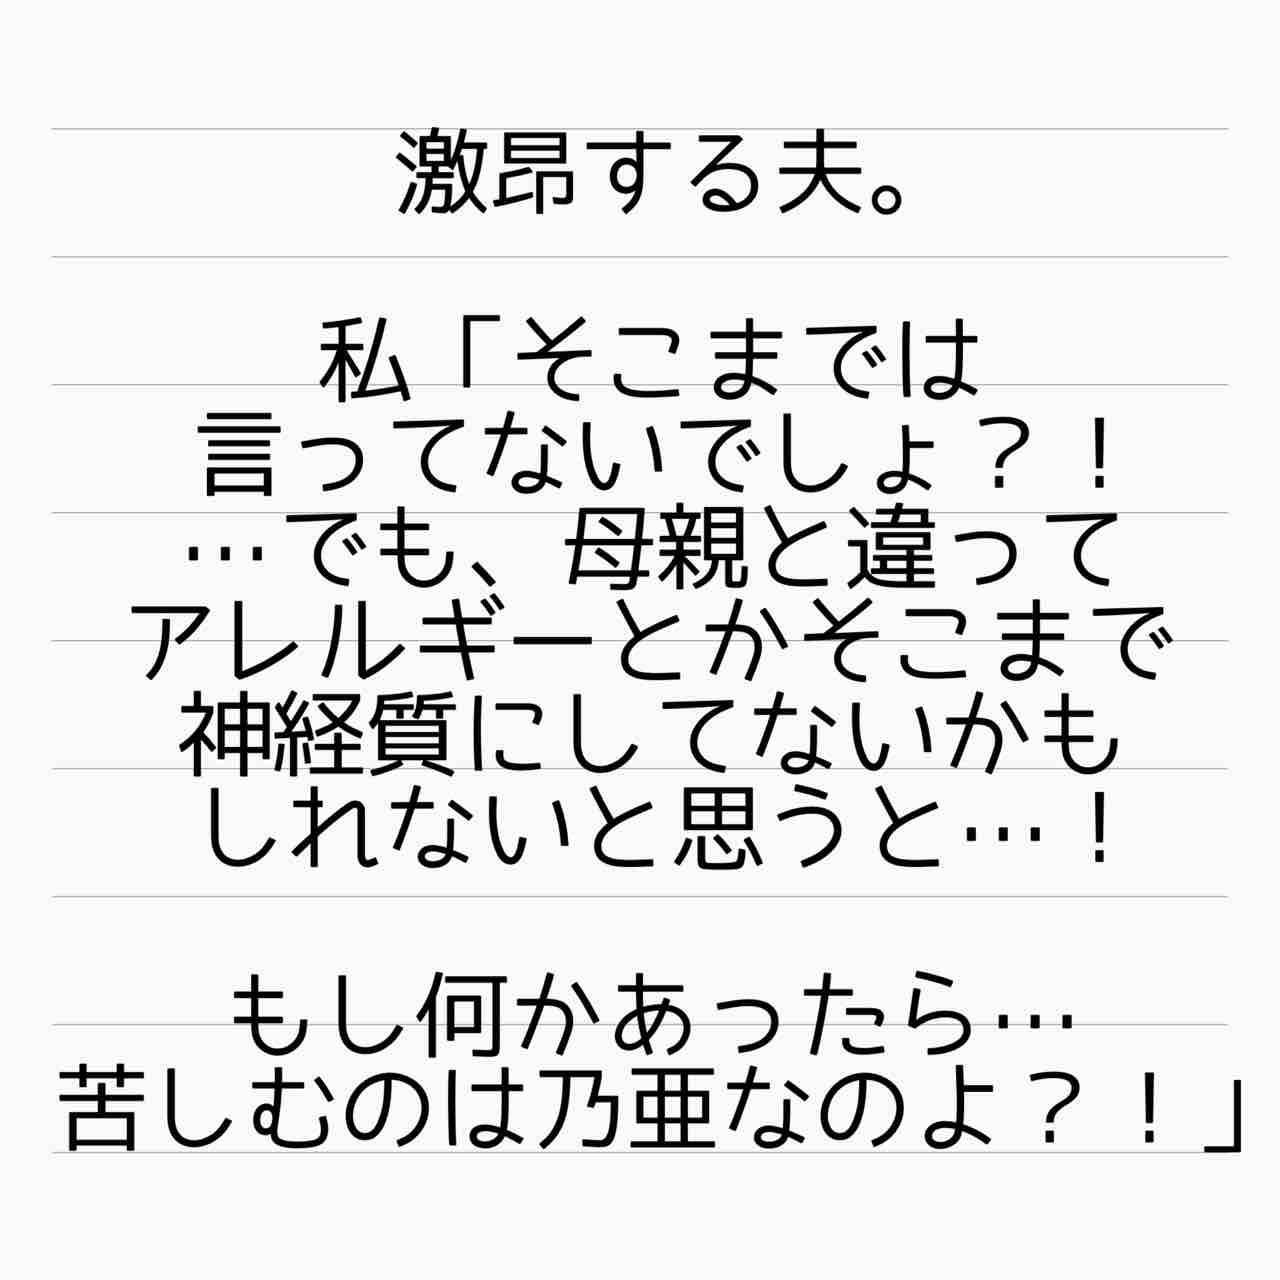 激昂する夫。
私「そこまでは
言ってないでしょ？！
…でも、母親と違って
アレルギーとかそこまで
神経質にしてないかも
しれないと思うと…！
もし何かあったら…
苦しむのは乃亜なのよ？！」